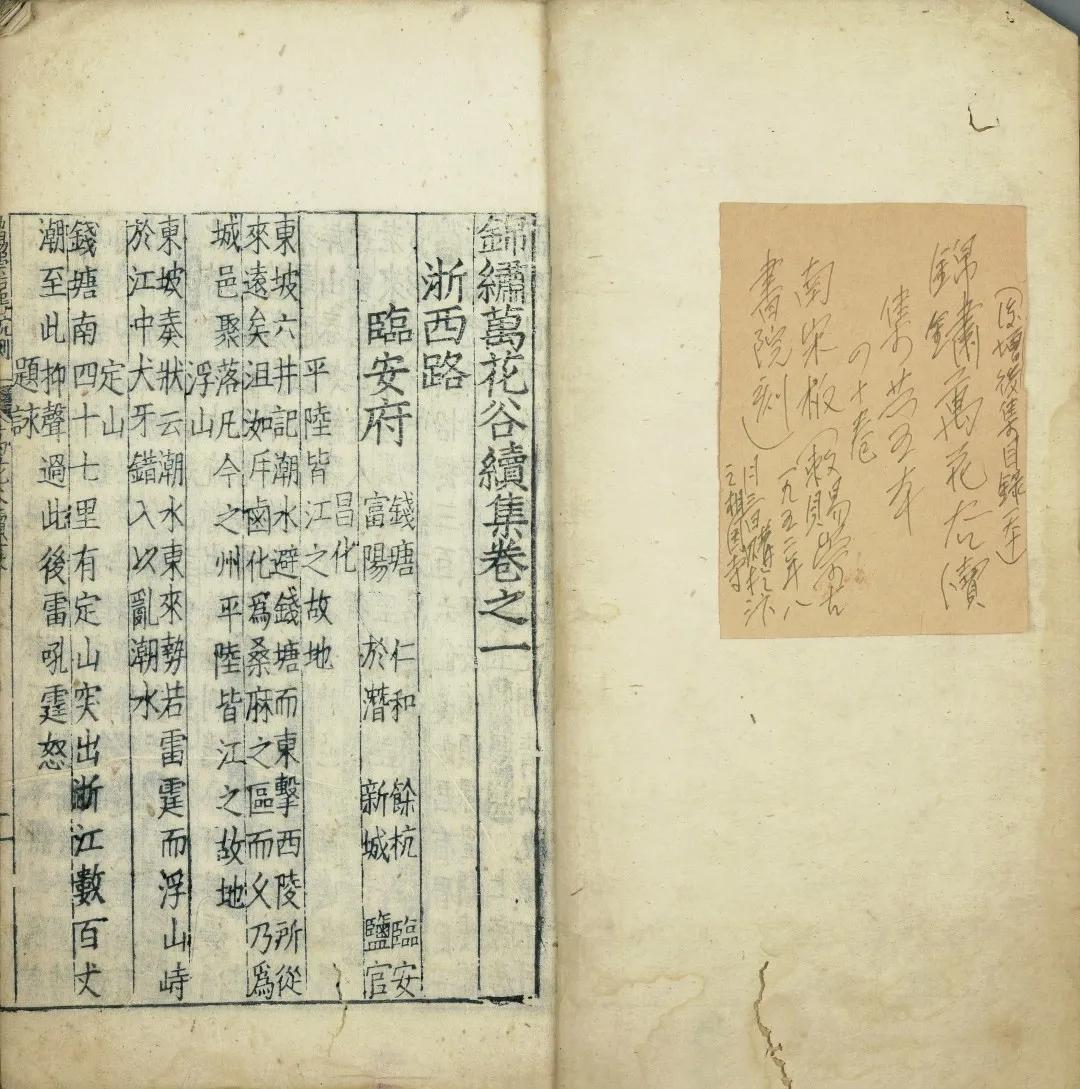 增後集目錄一本
錦繡萬花谷續
集 共五本
四十卷
南宋板
書院刻 一九五二年八
月三日購於汴
之相國寺
錦繡萬花谷續集卷之一
浙西路
臨安府
錢塘 仁和 餘杭 臨安
富陽 於潛 新城 鹽官
昌化
平陸皆江之故地
東坡六井記潮水避錢塘而東擊西陵所從
來遠矣沮洳斥鹵化爲桑麻之區而久乃爲
城邑聚落凡今之州平陸皆江之故地
浮山
東坡奏狀云潮水東來勢若雷霆而浮山峙
於江中犬牙錯入以亂潮水
定山
錢塘南四十七里有定山突出浙江數百丈
潮至此抑聲過此後雷吼霆怒
題詠